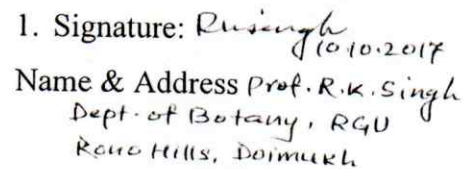 1. Signature: Rksingh
10.10.2017
Name & Address Prof. R.K. Singh
Dept. of Botany, RGU
Rono Hills, Doimukh